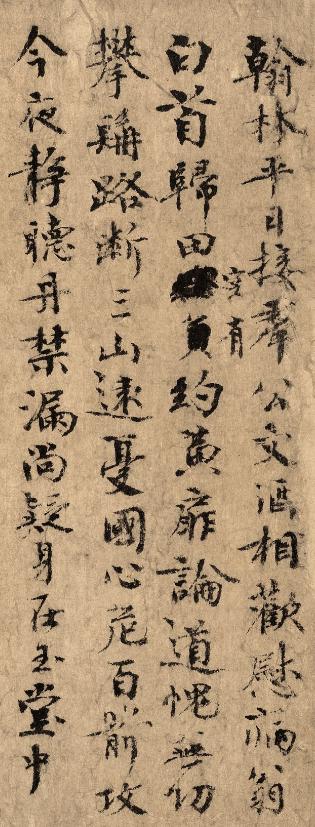 翰林平日接羣公文酒相歡慰病翁
空有
白首歸田負約黃扉論道愧無功
攀髯路斷三山遠憂國心危百箭攻
今夜靜聽丹禁漏尚疑身在玉堂中